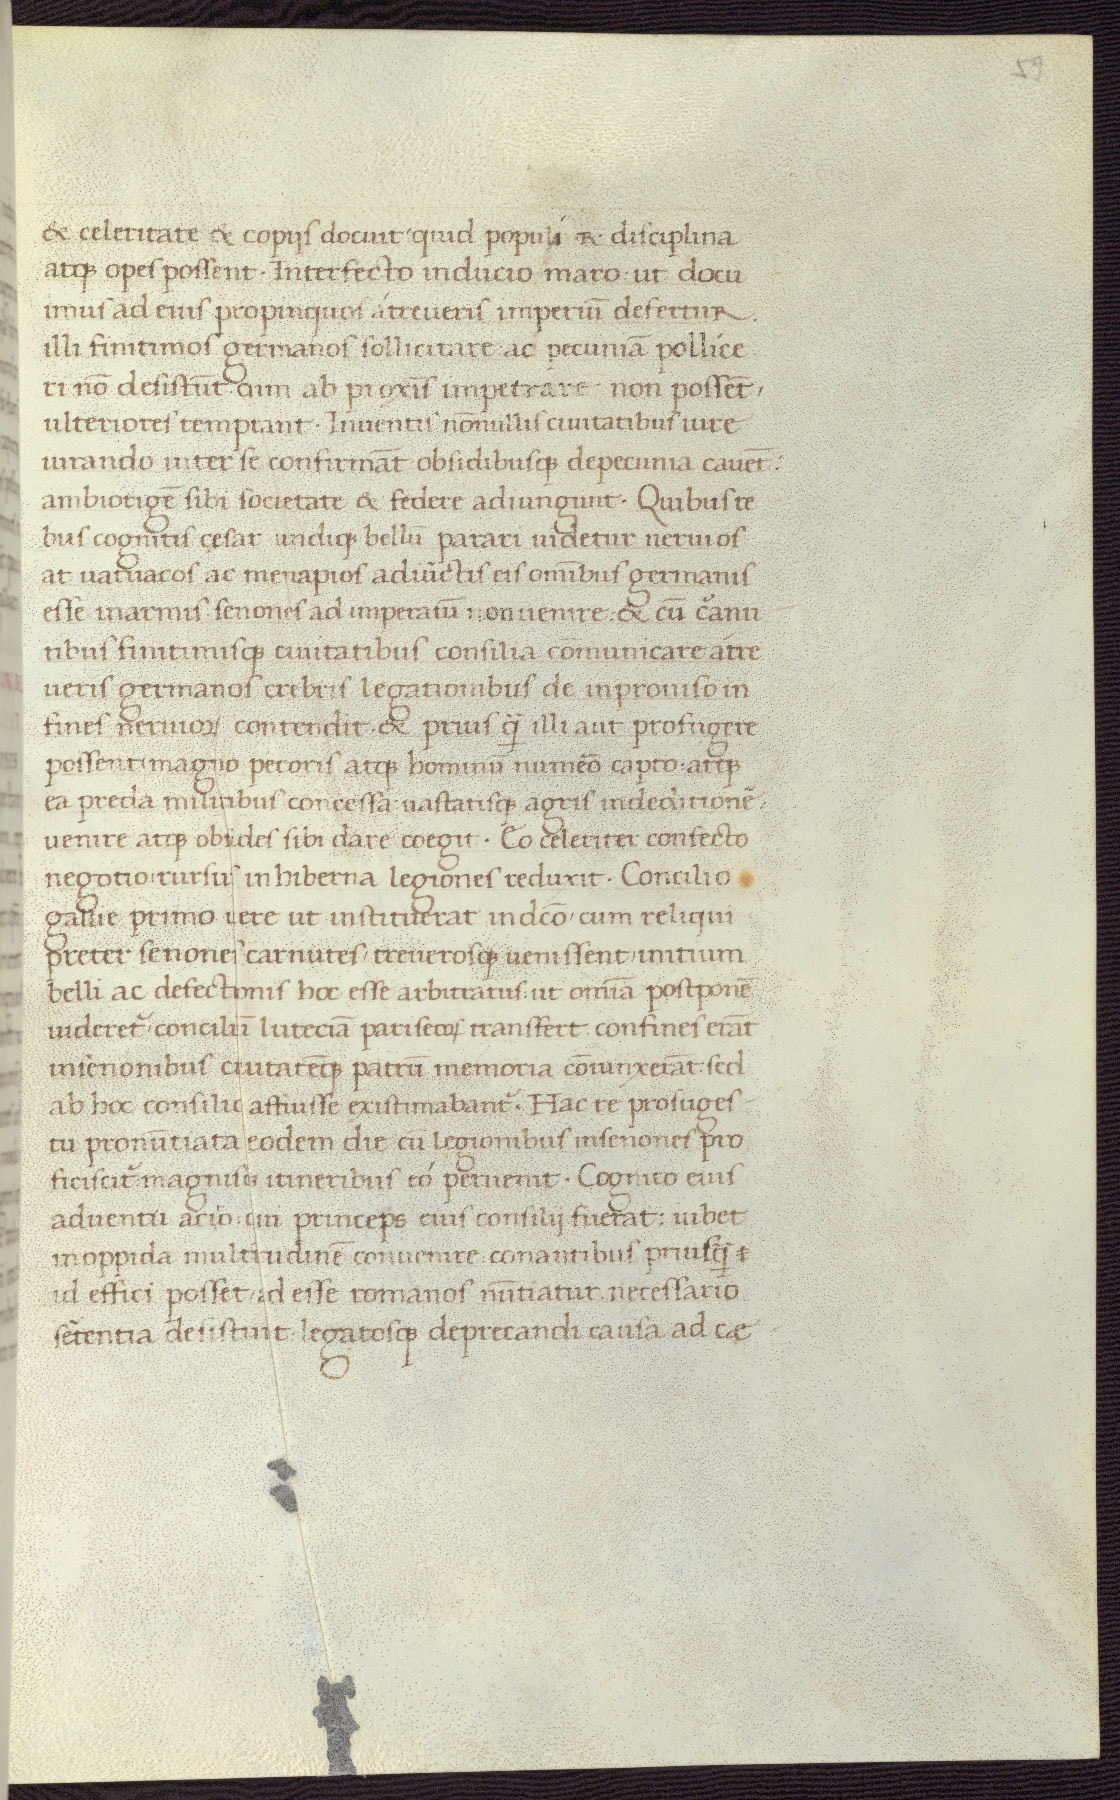 59
& celeritate & copijs docuit quid populi R disciplina
atqꝫ opes possent · Interfecto inducio maro ut docu
imus ad eius propinquos átreueris imperiū defertur .
illi finitimos germanos sollicitare ac pecuniā pollice
ri nō desistūt cum ab proxis̄ impetrare non possēt ,
ulteriores temptant · Inuentis nōnullis ciuitatibus iure
iurando inter se confirmāt obsidibusqꝫ depecunia cauēt :
ambiotigē sibi societate & federe adiungunt · Quibus re
bus cognitis cęsar undiqꝫ bellū parari uidetur neruios
at uatuacos ac menapios adiūctis eis omībus germanis
esse inarmis senones ad imperatū non uenire & cū carnu
tibus finitimisqꝫ ciuitatibus consilia cōmunicare átre
ueris germanos crebris legationibus de inprouiso in
fines neruioꝝ contendit & prius qꝫ̄ illi aut profugere
possent magno pecoris atqꝫ hominū numēo capto atqꝫ
ea preda militibus concessa uastatisqꝫ agris indeditionē
uenire atqꝫ obsides sibi dare coegit · Eo celeriter confecto
negotio rursus in hiberna legiones reduxit · Concilio
gallie primo uere ut instituerat indcō cum reliqui
preter senones carnutes treuerosqꝫ uenissent initium
belli ac defectionis hoc esse arbitratus ut omīa postponē
uideret᷑ conciliū luteciā pariseoꝝ transfert confines erāt
insenonibus ciuitatēqꝫ patrū memoria cōiunxerāt sed
ab hoc consilio affuisse existimabant᷑ · Hac re profuges
tu pronūtiata eodem die cū legionibus insenones pro
ficiscit᷑ magnisqꝫ itineribus eó peruenit · Cognito eius
aduentu acio qui princeps eius consilij fuerat : iubet
in oppida multitudinē conuenire conantibus priusqꝫ̄
id effici posset ad eisse romanos nūtiatur necessario
sētentia desistunt legatosqꝫ deprecandi causa ad cæ